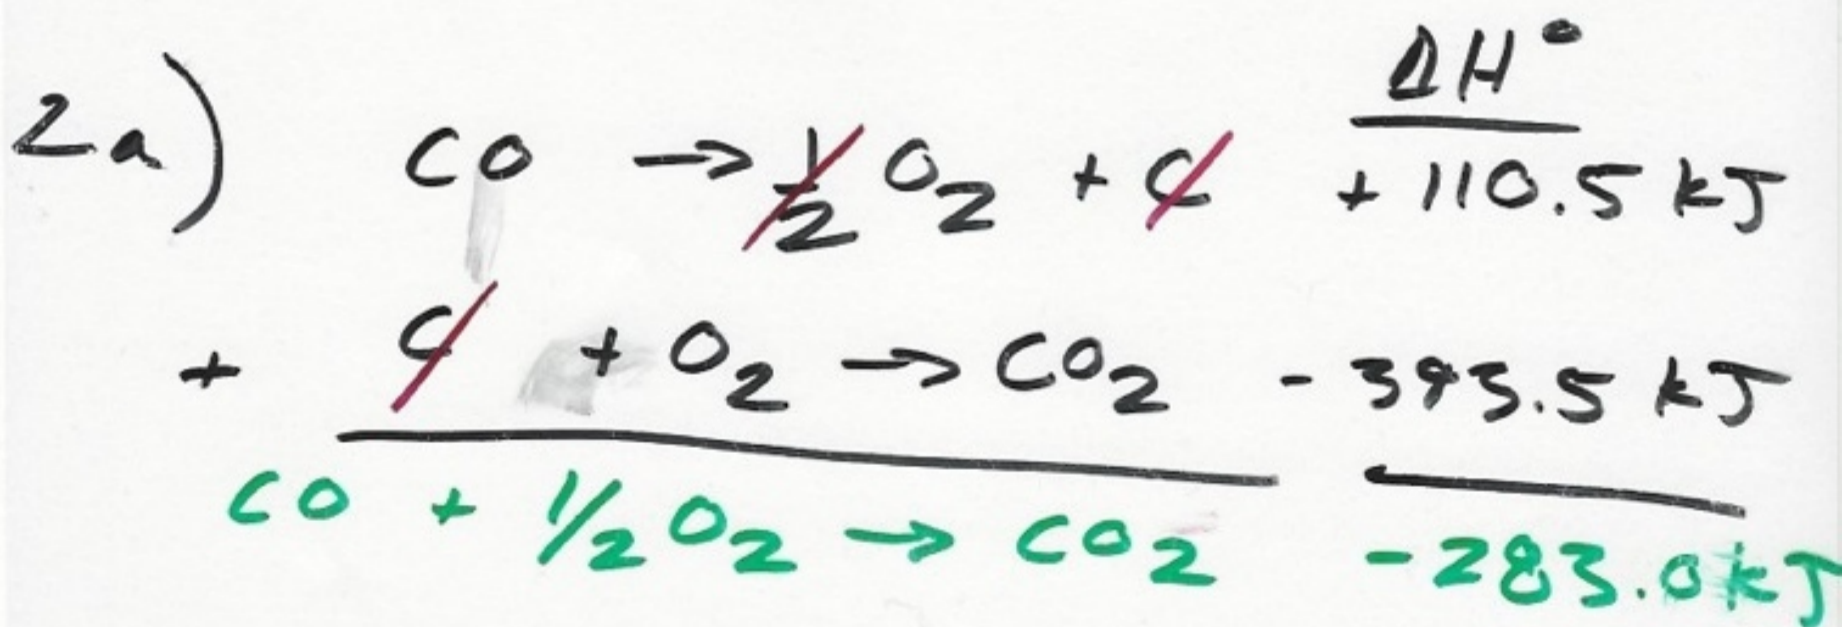 ΔH°
2a) CO → 1/2 O₂ + C + 110.5 kJ
+ C + O₂ → CO₂ - 393.5 kJ
CO + 1/2 O₂ → CO₂ - 283.0 kJ